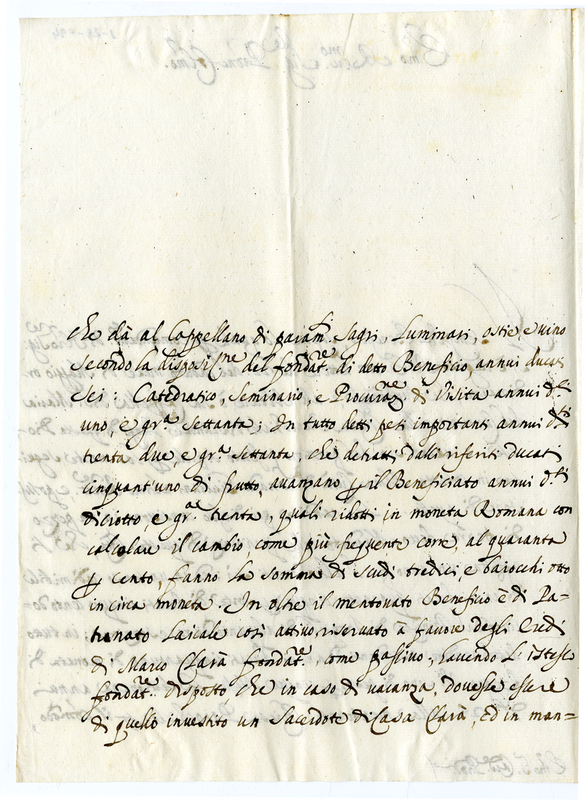 che dà al Cappellano di param.ti Sagri, Luminari, ostie, e vino
secondo la disposiz.ne del fondat.re di detto Beneficio annui ducati
sei: Catedratico, Seminario, e Procuraz.ne di Visita annui d.ti
uno, e gr.a settanta; In tutto detti pesi importanti annui d.ti
trenta due, e gr.a settanta, che detratti dalli riferiti ducati
cinquant'uno di frutto, avanzano p il Beneficiato annui d.ti
diciotto, e gr.a trenta, quali ridotti in moneta Romana con
calcolare il cambio, come più frequente corre, al quaranta
p cento, fanno la somma di scudi tredici, e baiocchi otto
in circa moneta. In oltre il mentovato Beneficio è di Pa=
tronato Laicale così attivo, riservato à favore degli Eredi
di Marco Clarà fondat.re, come passivo, havendo l'istesso
fondat.re disposto che in caso di vacanza, dovesse essere
di quello investito un Sacerdote di Casa Clarà, ed in man=